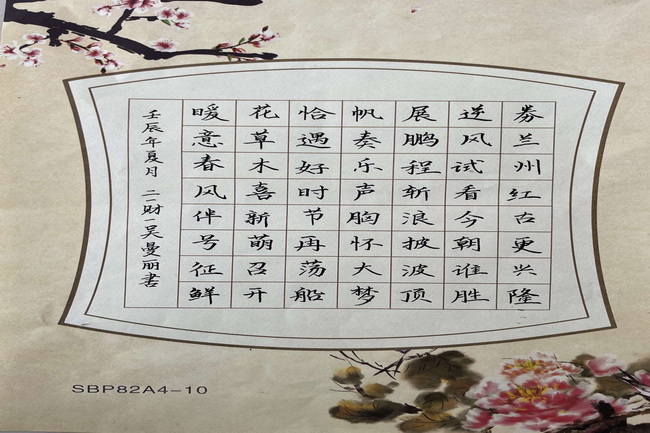 券兰州红古更兴隆
逆风试看今朝谁胜
展鹏程斩浪披波顶
帆奏乐声胸怀大梦
恰遇好时节再荡船
花草木喜新萌召开
暖意春风伴号征鲜
壬辰年夏月 二一财一吴曼丽书
SBP82A4-10